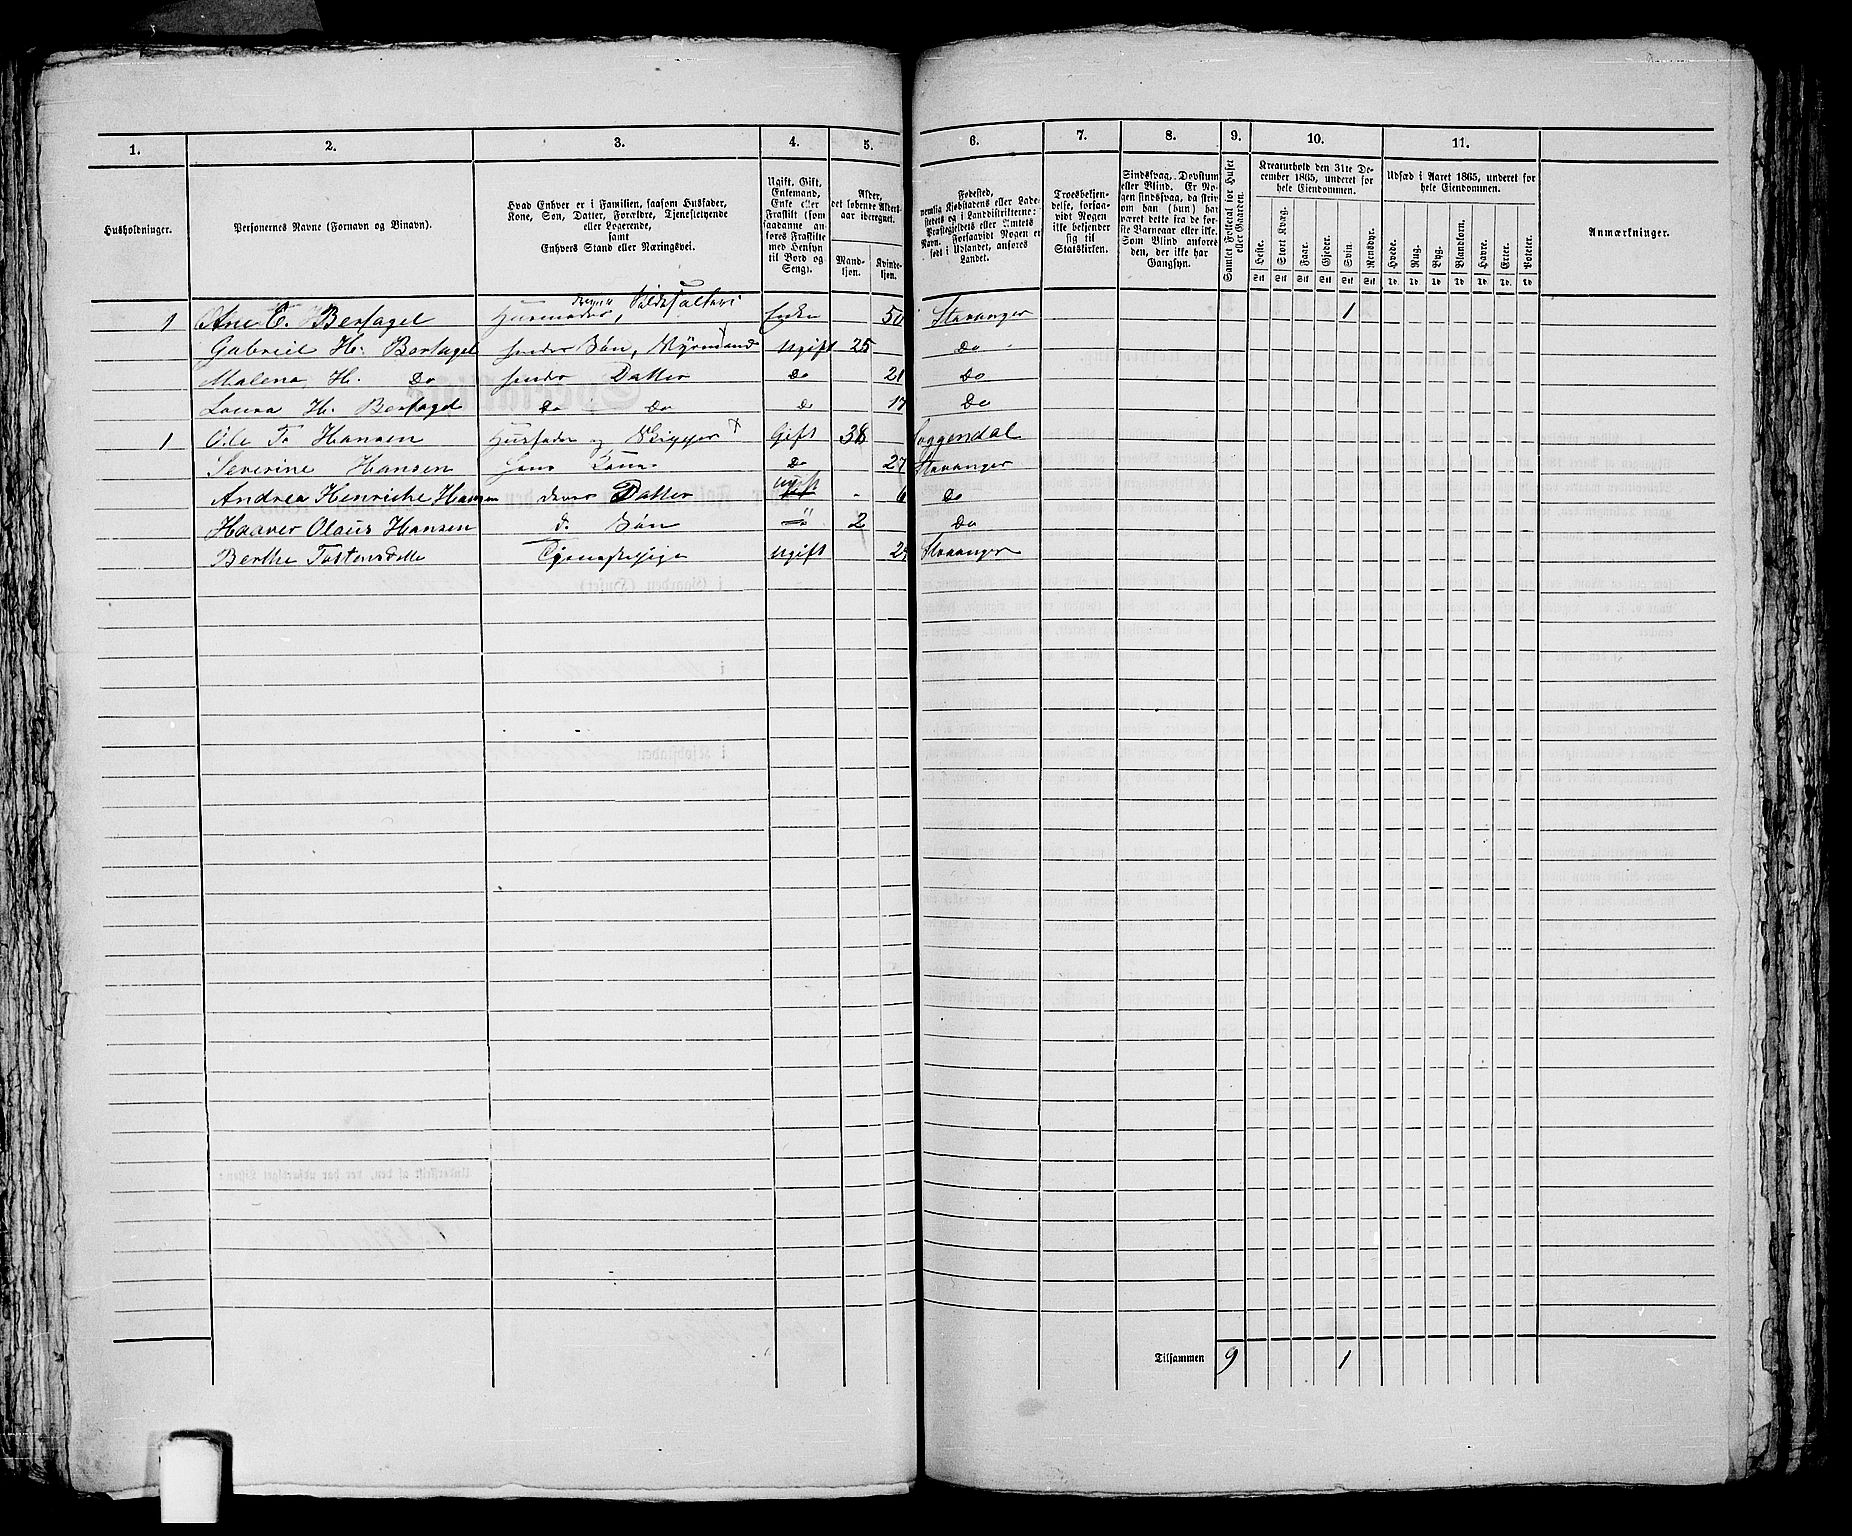 1. 2. 3. 4. 5. 6. 7. 8. 9. 10. 11.
Husholdninger.
Personernes Navne (Fornavn og Binavn).
Hvad Enhver er i Familien, saasom Husfader,
Kone, Søn, Datter, Forældre, Tjenestetyende
eller Logerende,
samt
Enhvers Stand eller Næringsvei.
Ugift, Gift,
Enkemand,
Enke eller
Fraskilt (som
saadanne an-
føres Fraskilte
med Hensyn
til Bord og
Seng).
Alder,
det løbende Alders-
aar iberegnet.
Mand-
kjøn.
Kvinde-
kjøn.
Fødested,
nemlig Kjøbstadens eller Lade-
stedets og i Landdistrikterne:
Præstegjeldets eller Amtets
Navn. Forsaavidt Nogen er
født i Udlandet, anføres
Landet.
Troesbekjen-
delse, forsaa-
vidt Nogen
ikke bekjender
sig til
Statskirken.
Sindssvag, Døvstum
eller Blind. Er No-
gen sindssvag, da skriv
om han (hun) har
været dette fra de før-
ste Barneaar eller ikke.
Som Blind anføres
den, der ikke har
Gangsyn.
Samlet Folketal for Huset
eller Gaarden.
Kreaturhold den 31te De-
cember 1865, underet for
hele Eiendommen.
Heste. Stort Kvæg. Faar. Gjeder. Svin. Rensdyr.
Udsæd i Aaret 1865, underet for
hele Eiendommen.
Hvede. Rug. Byg. Blandkorn. Havre. Erter. Poteter.
Anmærkninger.
1 Ane C. Bersagel Husmoder, Enke 50 Stavanger 1
Gabriel H. Bersagel hendes Søn, Styrmand Ugift 25 Do
Malena H. Do hendes Datter Do 21 Do
Laura H. Bersagel Do Do Do 17 Do
1 Ole T. Hansen Husfader og Skipper Gift 38 Soggendal
Severine Hansen hans Kone Do 27 Stavanger
Andrea Henriche Hansen deres Datter ugift 6 Do
Haaver Olaus Hansen d. Søn " 2 Do
Berthe Tostensdtte Tjenestepige Ugift Stavanger
Tilsammen 9 1